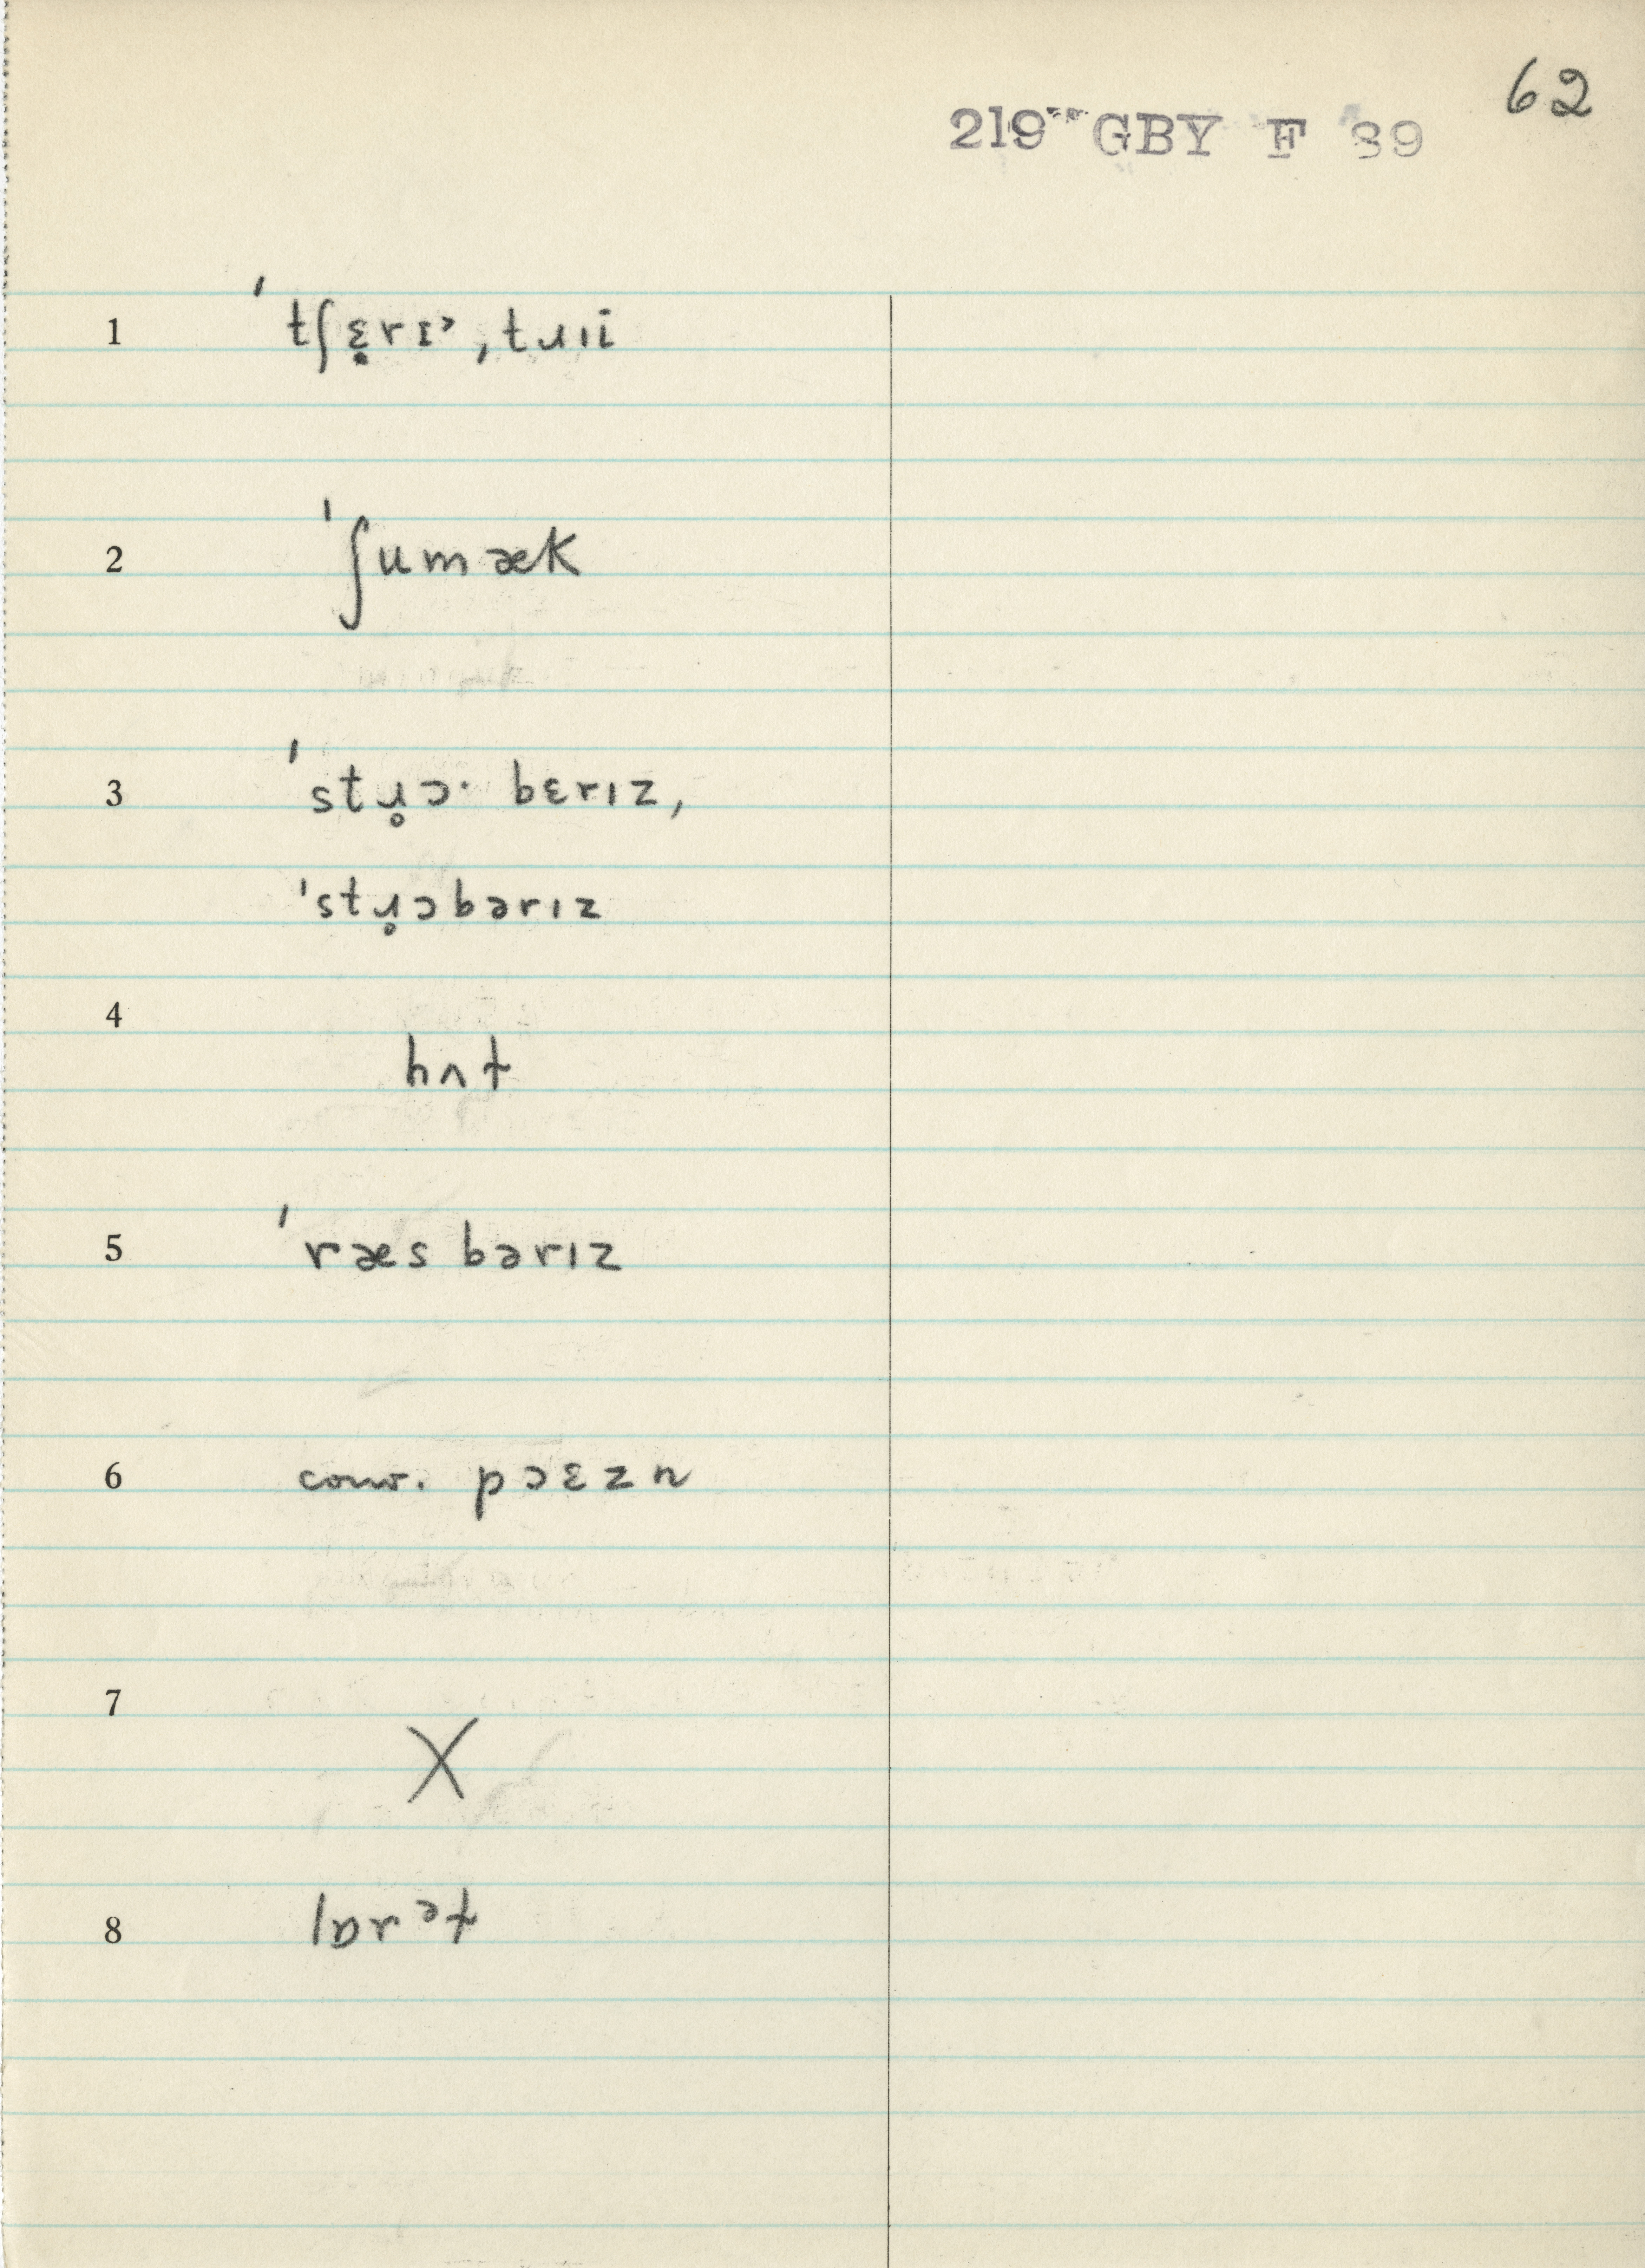 62
219 GBY F 39
1 ˈtʃɛ̣rɪ˒, tɹıi
2 ˈʃumæk
3 ˈstɹ̥ɔ· bɛrız,
ˈstɹ̥ɔbərız
4 hʌt
5 ˈræs bərız
6 conv. pɔɛzn
7 X
8 lɒrət